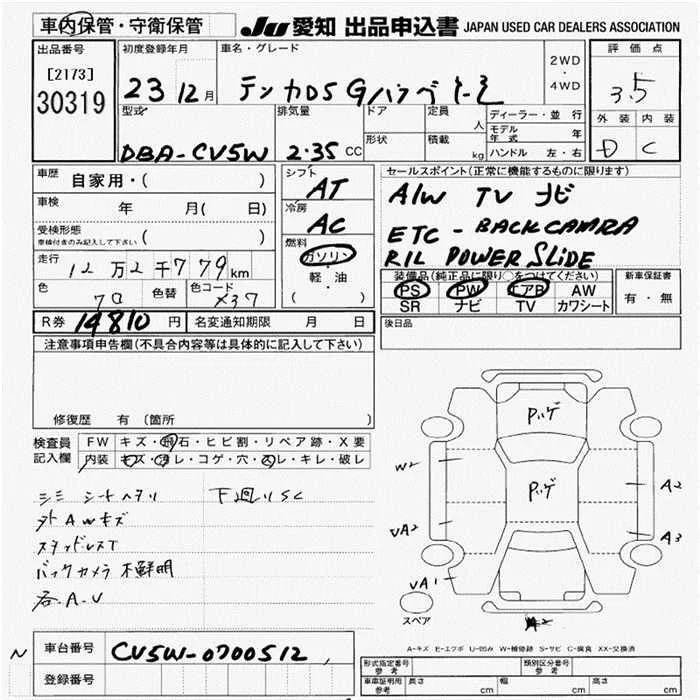 車内保管・守衛保管
JU 愛知 出品申込書 JAPAN USED CAR DEALERS ASSOCIATION
出品番号
[2173]
30319
初度登録年月
23 12月
車名・グレード
2WD
・
4WD
評価点
3.5
型式
DBA-CV5W
排気量
2.35 CC
ドア
形状
定員
人
積載
kg
ディーラー・並行
モデル年式 年
ハンドル 左・右
外装 内装
D C
車歴
自家用・( )
車検
年 月( 日)
受検形態
車検付きのみ記入して下さい ( )
走行
12万2千779km
色
色替
色コード
X37
シフト
AT
冷房
AC
燃料
ガソリン
・
軽・油
( )
セールスポイント(正常に機能するものに限ります)
A/W TV ナビ
ETC - BACK CAMRA
R/L POWER SLIDE
装備品(純正品に限り○をつけてください)
PS PW エアB AW
SR ナビ TV カワシート
新車保証書
有・無
R券 14810円
名変通知期限 月 日
後日品
注意事項申告欄(不具合内容等は具体的に記入して下さい)
修復歴 有(箇所 )
検査員
記入欄
FW キズ・飛石・ヒビ割・リペア跡・X要
内装 キズ・汚レ・コゲ・穴・スレ・キレ・破レ
シミ シートヘタリ 下廻りSC
外AWキズ
スタッドレスT
バックカメラ不鮮明
各A.U
Pハゲ
Pハゲ
W2
UA2
UA1
A2
A3
A2
スペア
A-キズ E-エクボ U-凹み W-補修跡 S-サビ C-腐食 XX-交換済
N
車台番号
CV5W-0700512
登録番号
形式指定番号
参考
類別区分番号
参考
車庫証明用
参考
長さ cm 幅 cm 高さ cm